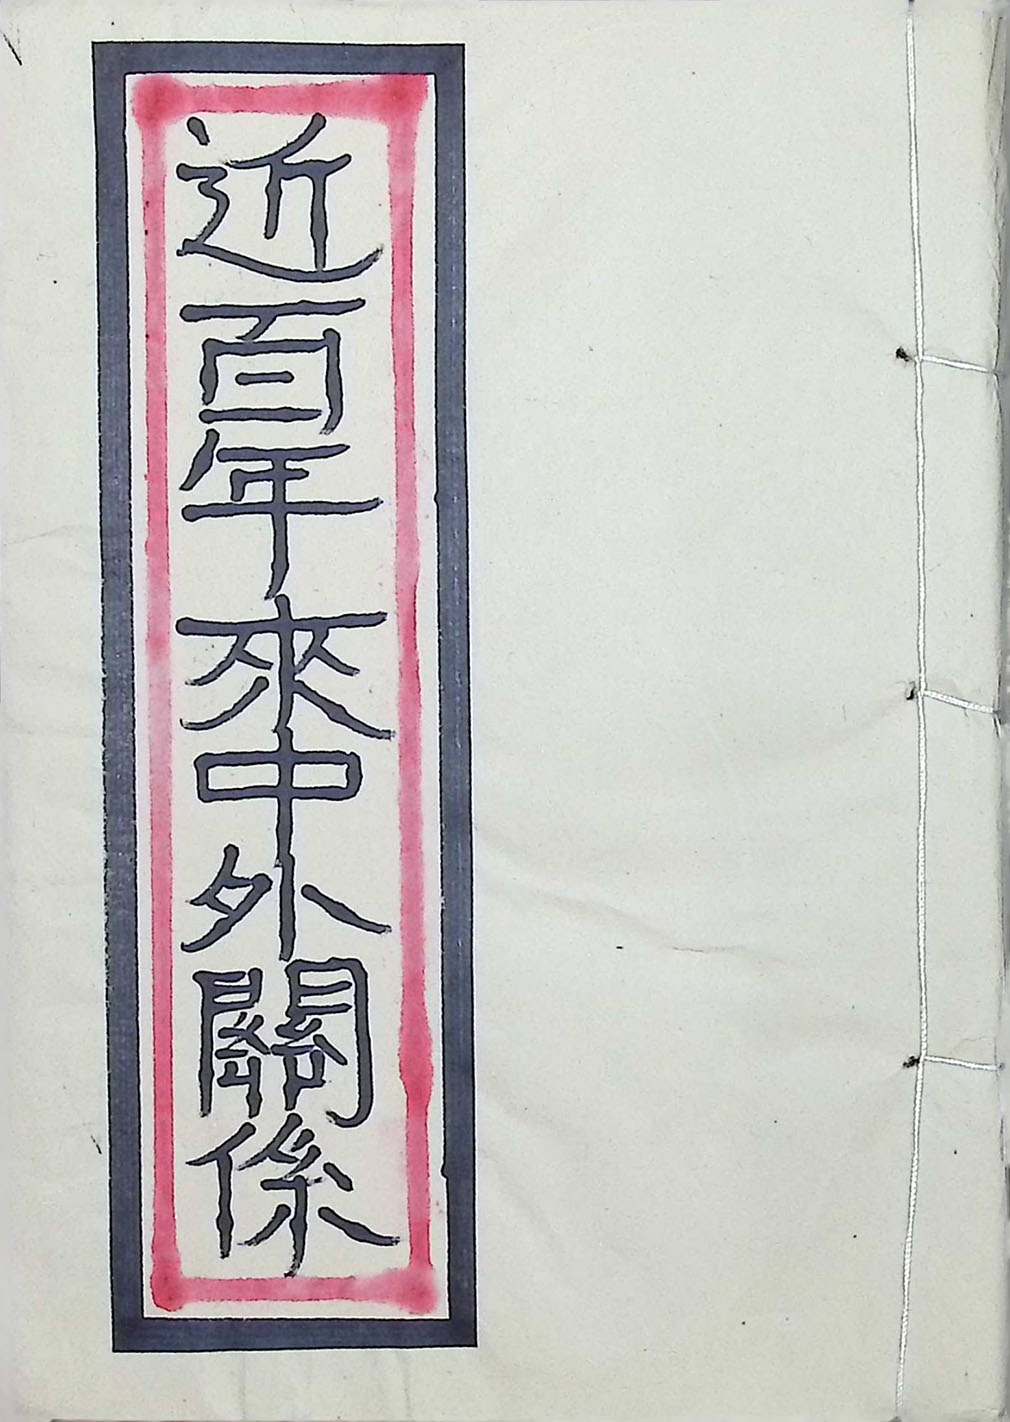 近百年來中外關係